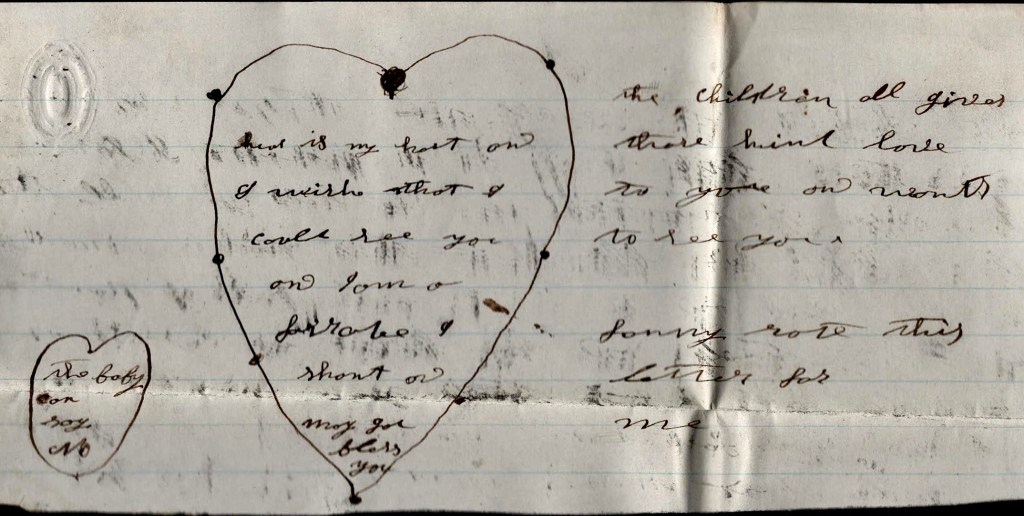 hear is my hart and
I wish that I
could see you
and I am a
fraide I
shant
may god
bless
you
the baby
can
say
No
the children all gives
there kind love
to you and wonts
to see you
fanny rote this
letter for
me